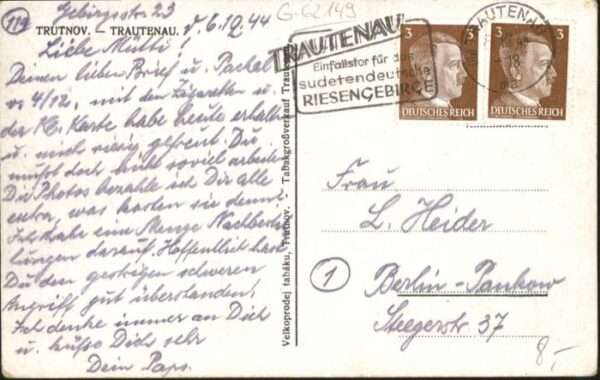 119
Gebirgsstr. 23
TRUTNOV. — TRAUTENAU. d. 6.12.44
Liebe Mutti!
Deinen lieben Brief u. Packal
v. 4/12, mit den Zigaretten u.
der Kl. Karte habe heute erhalten
u. mich riesig gefreut. Du
mußt doch soviel arbeiten
Die Photos bezahle ich Dir alle
extra, was kosten sie denn?
Ich habe eine Menge Nachbestel
lungen darauf. Hoffentlich hast
Du den gestrigen schweren
Angriff gut überstanden!
Ich denke immer an Dich
u. küsse Dich sehr
Dein Paps.
Velkoprodej tabáku, Trutnov. - Tabakgroßverkauf Traut
G-62149
TRAUTENAU
Einfallstor für das
sudetendeutsche
RIESENGEBIRGE
3 3
DEUTSCHES REICH
3 3
DEUTSCHES REICH
TRAUTENAU
18
Frau
L. Heider
1 Berlin-Pankow
Steegerstr. 37
8,-